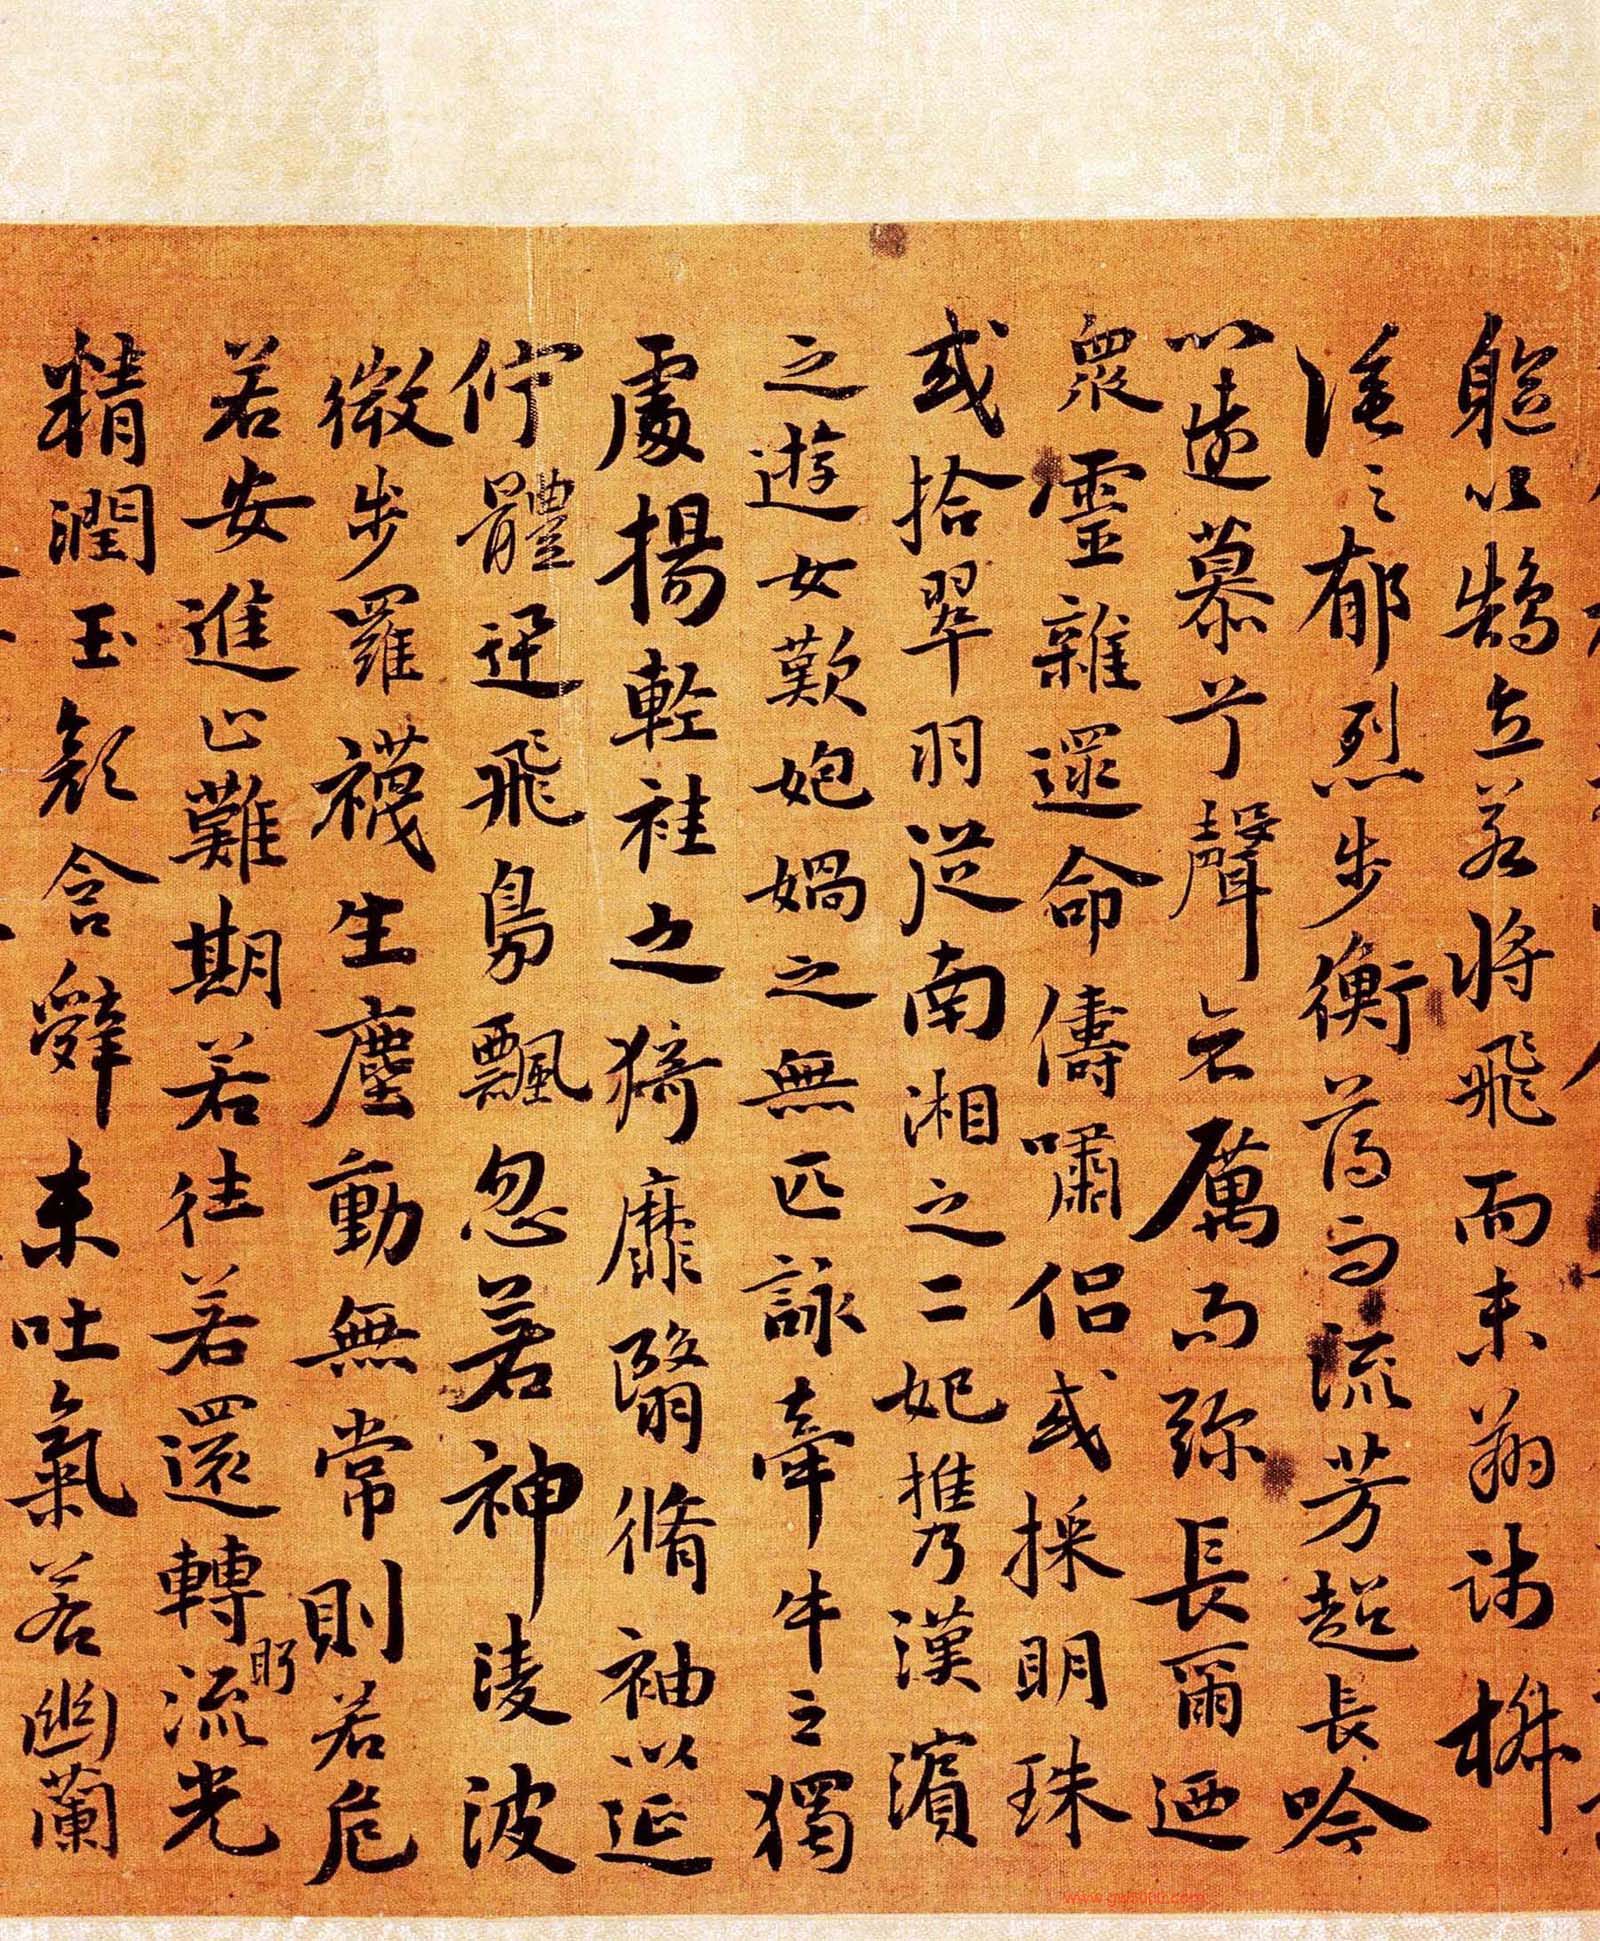 軀以鶴立若將飛而未翔踐椒
塗之郁烈步衡薄而流芳超長吟
以遠慕兮聲哀厲而弥長爾迺
衆靈雜遝命儔嘯侶或採明珠
或拾翠羽從南湘之二妃携漢濱
之遊女歎㚿媧之無匹詠牽牛之獨
處揚輕袿之猗靡翳脩袖以延
佇體迅飛鳧飄忽若神淩波
微步羅襪生塵動無常則若危
若安進止難期若往若還轉眄流光
精潤玉顏含辭未吐氣若幽蘭